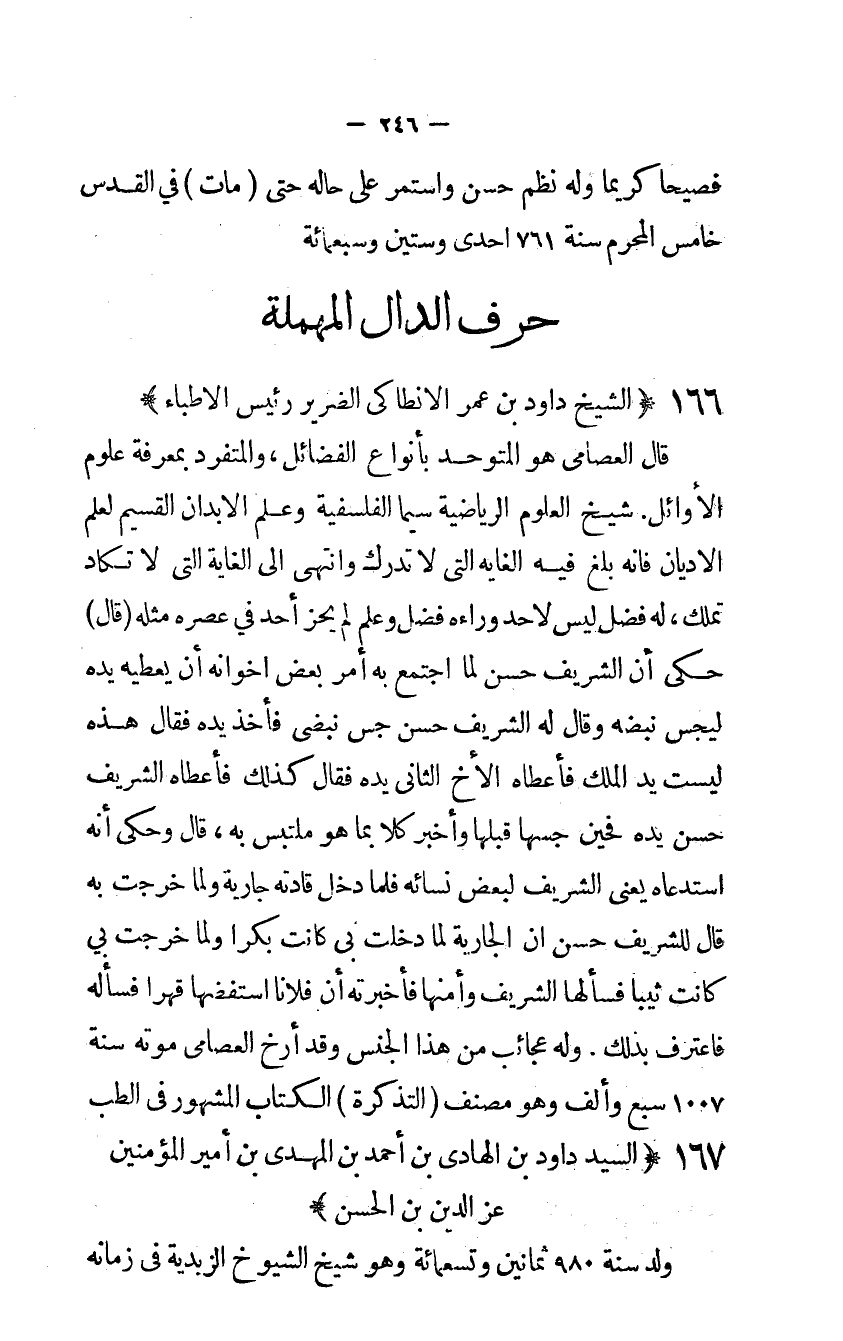 — ٢٤٦ —
فصيحا كريما وله نظم حسن واستمر على حاله حتى ( مات ) في القدس
خامس المحرم سنة ٧٦١ احدى وستين وسبعمائة
حرف الدال المهملة
١٦٦ ﴿ الشيخ داود بن عمر الانطاكى الضرير رئيس الاطباء ﴾
قال العصامى هو المتوحد بأنواع الفضائل ، والمتفرد بمعرفة علوم
الأوائل. شيخ العلوم الرياضية سيما الفلسفية وعلم الابدان القسيم لعلم
الاديان فانه بلغ فيه الغايه التى لا تدرك وانتهى الى الغاية التى لا تكاد
تملك ، له فضل ليس لاحد وراءه فضل وعلم لم يحز أحد في عصره مثله (قال)
حكى أن الشريف حسن لما اجتمع به أمر بعض اخوانه أن يعطيه يده
ليجس نبضه وقال له الشريف حسن جس نبضى فأخذ يده فقال هذه
ليست يد الملك فأعطاه الأخ الثانى يده فقال كذلك فأعطاه الشريف
حسن يده فحين جسها قبلها وأخبر كلا بما هو ملتبس به ، قال وحكى أنه
استدعاه يعنى الشريف لبعض نسائه فلما دخل قادته جارية ولما خرجت به
قال للشريف حسن ان الجارية لما دخلت بى كانت بكرا ولما خرجت بي
كانت ثيبا فسألها الشريف وأمنها فأخبرته أن فلانا استفضها قهرا فسأله
فاعترف بذلك . وله عجائب من هذا الجنس وقد أرخ العصامى موته سنة
١٠٠٧ سبع وألف وهو مصنف ( التذكرة ) الكتاب المشهور فى الطب
١٦٧ ﴿ السيد داود بن الهادى بن أحمد بن المهدى بن أمير المؤمنين
عز الدين بن الحسن ﴾
ولد سنة ٩٨٠ ثمانين وتسعمائة وهو شيخ الشيوخ الزيدية فى زمانه